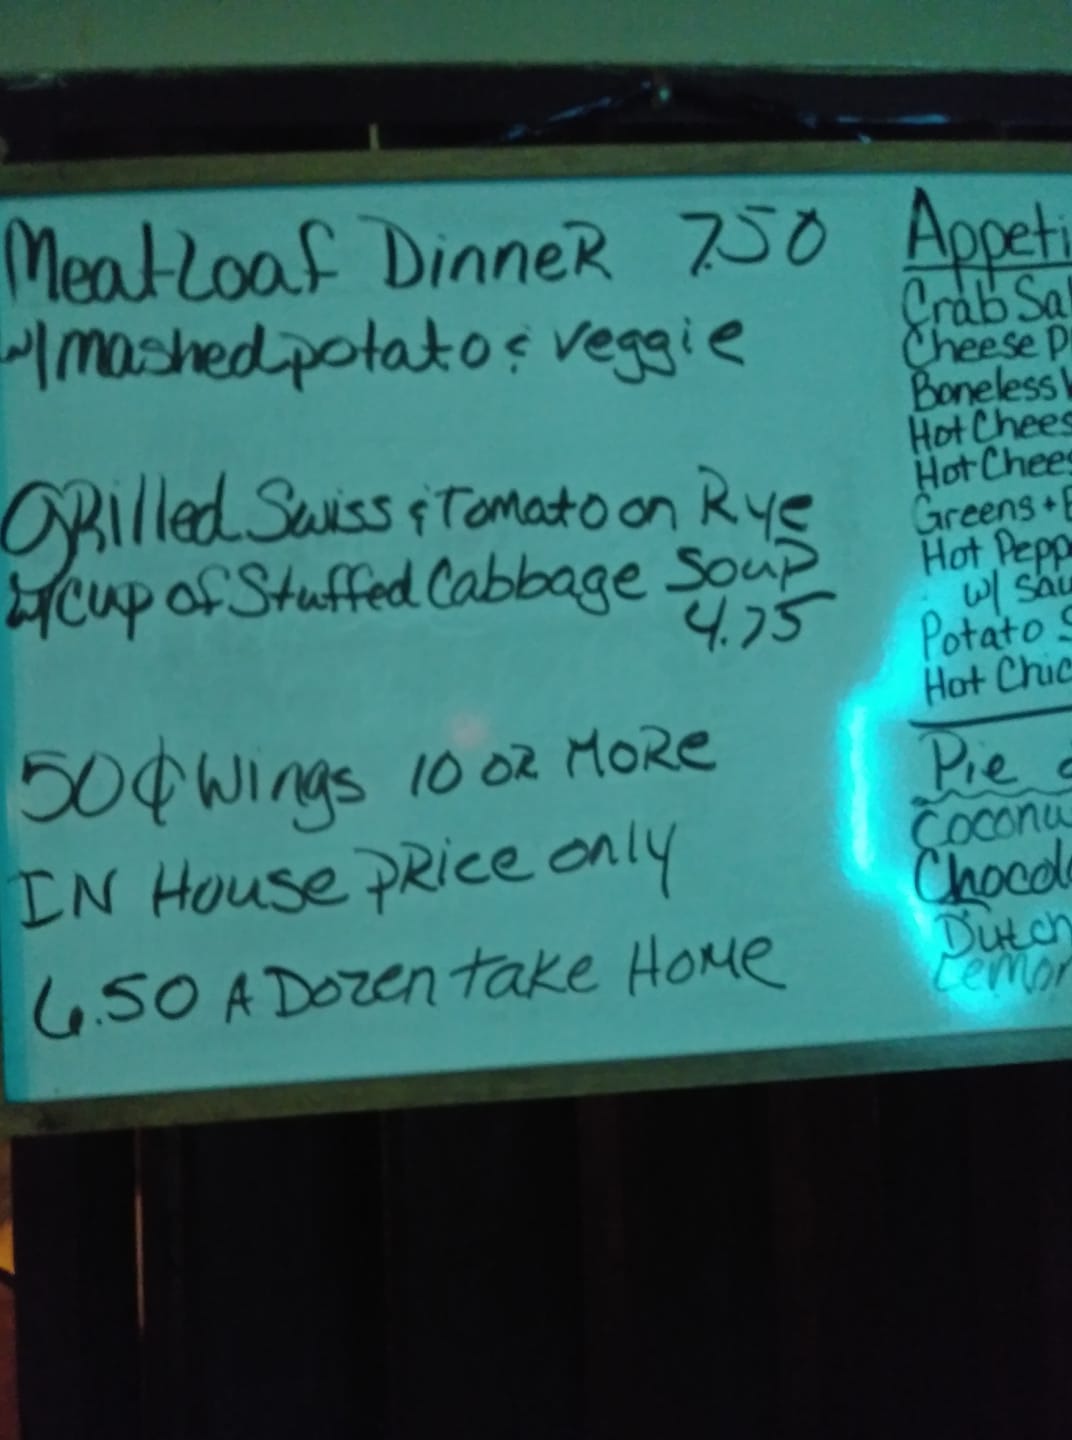 Meatloaf Dinner 7.50
w/ mashed potato & veggie
Grilled Swiss & Tomato on Rye
w/ cup of Stuffed Cabbage Soup
4.75
50¢ Wings 10 or More
In House price only
6.50 A Dozen take Home
Appeti
Crab Sal
Cheese Pl
Boneless
Hot Chees
Hot Chees
Greens +
Hot Pepp
w/ sau
Potato S
Hot Chic
Pie
Coconu
Chocol
Dutch
Lemon